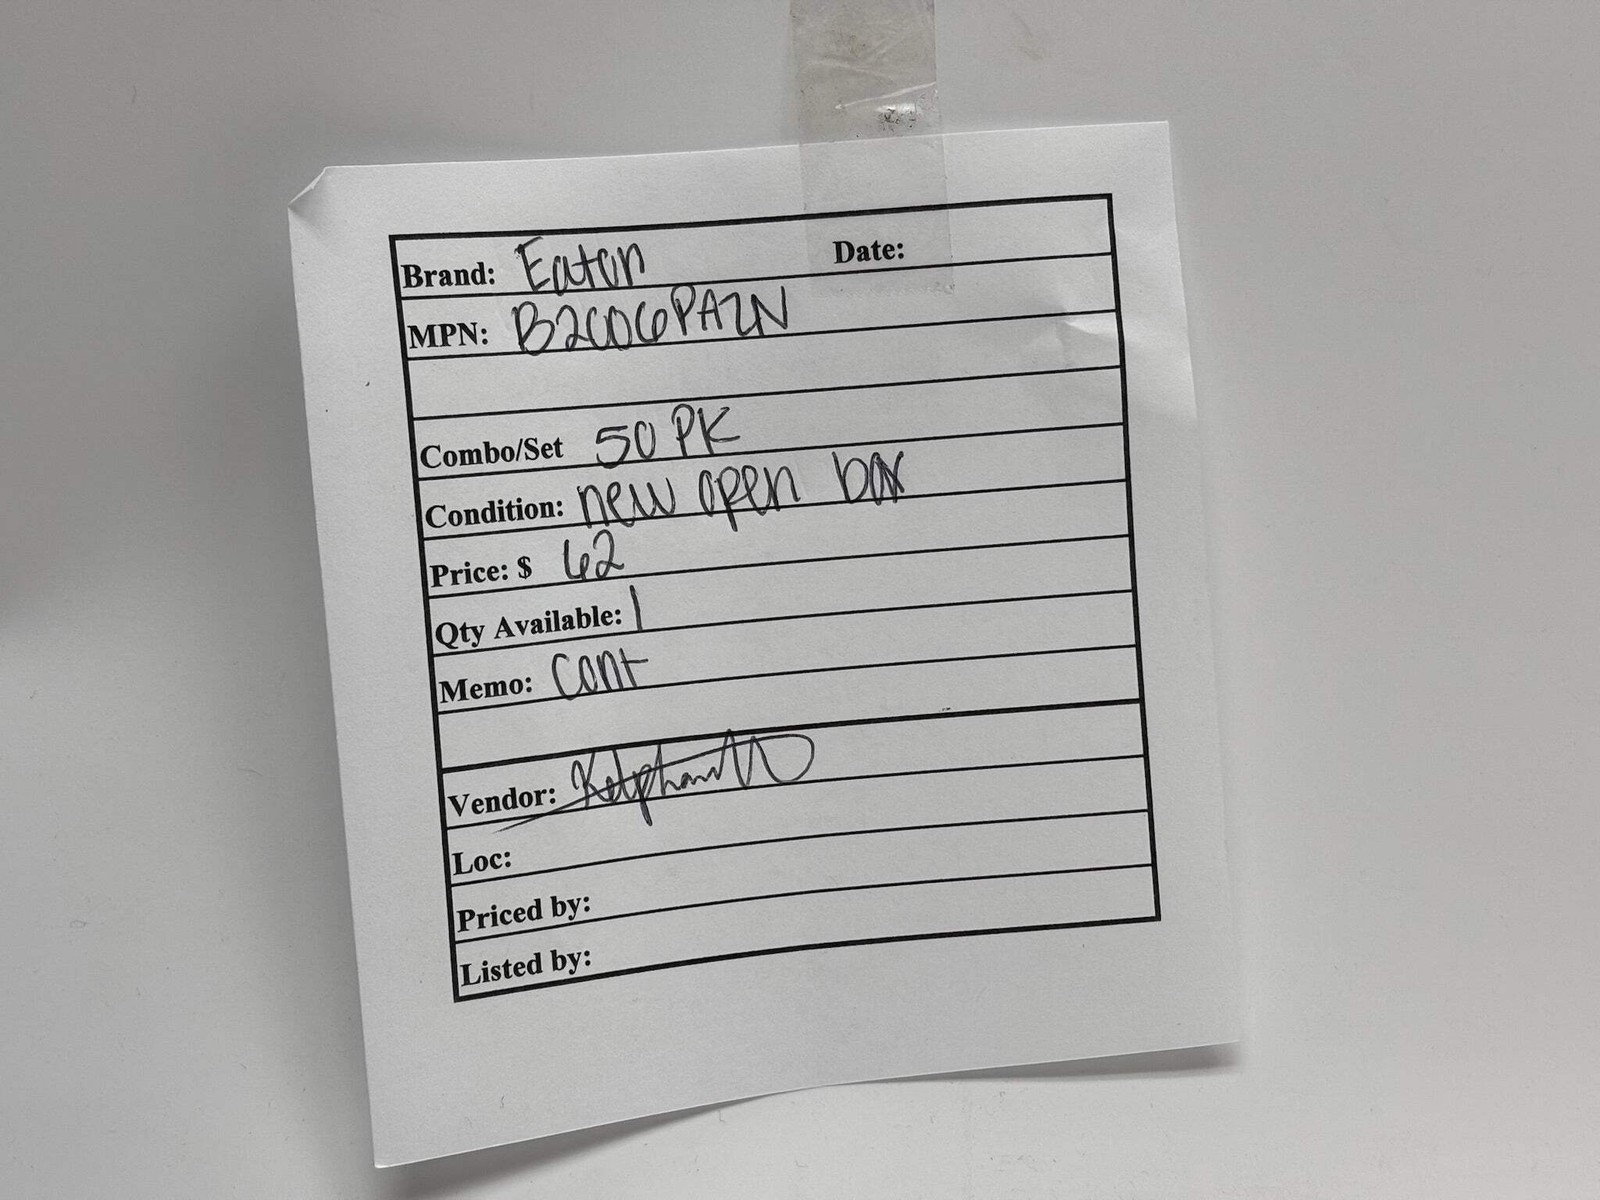 Brand: Eaton Date:
MPN: B2606PAZN
Combo/Set 50 PK
Condition: new open box
Price: $ 62
Qty Available: 1
Memo: Cont
Vendor:
Loc:
Priced by:
Listed by: